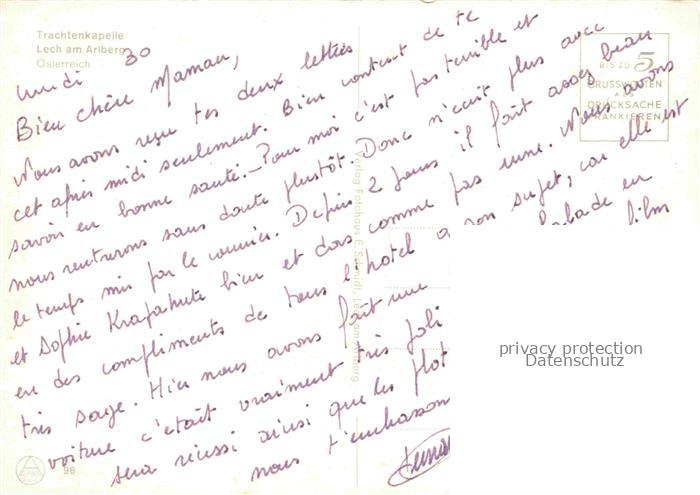 Trachtenkapelle
Lech am Arlberg
Österreich
BIS ZU 5
GRUSSWORTEN
ALS
DRUCKSACHE
FRANKIEREN
Verlag Fotohaus F. Schmidt, Lech am Arlberg
lundi 30
Bien chère Maman,
Nous avons reçu tes deux lettres
cet après midi seulement. Bien content de te
savoir en bonne santé. - Pour moi c'est pas terrible et
nous rentrerons sans doute plustôt. Donc n'écrit plus avec
le temps mis par le courrier. Depuis 2 jours il fait assez beau
et Sophie bien et dors comme pas une. Nous avons
eu des compliments de tous l'hotel a son sujet, car elle est
très sage. Hier nous avons fait une balade en
voiture c'était vraiment très joli film
sera réussi ainsi que les
nous t'embrasson
98
privacy protection
Datenschutz